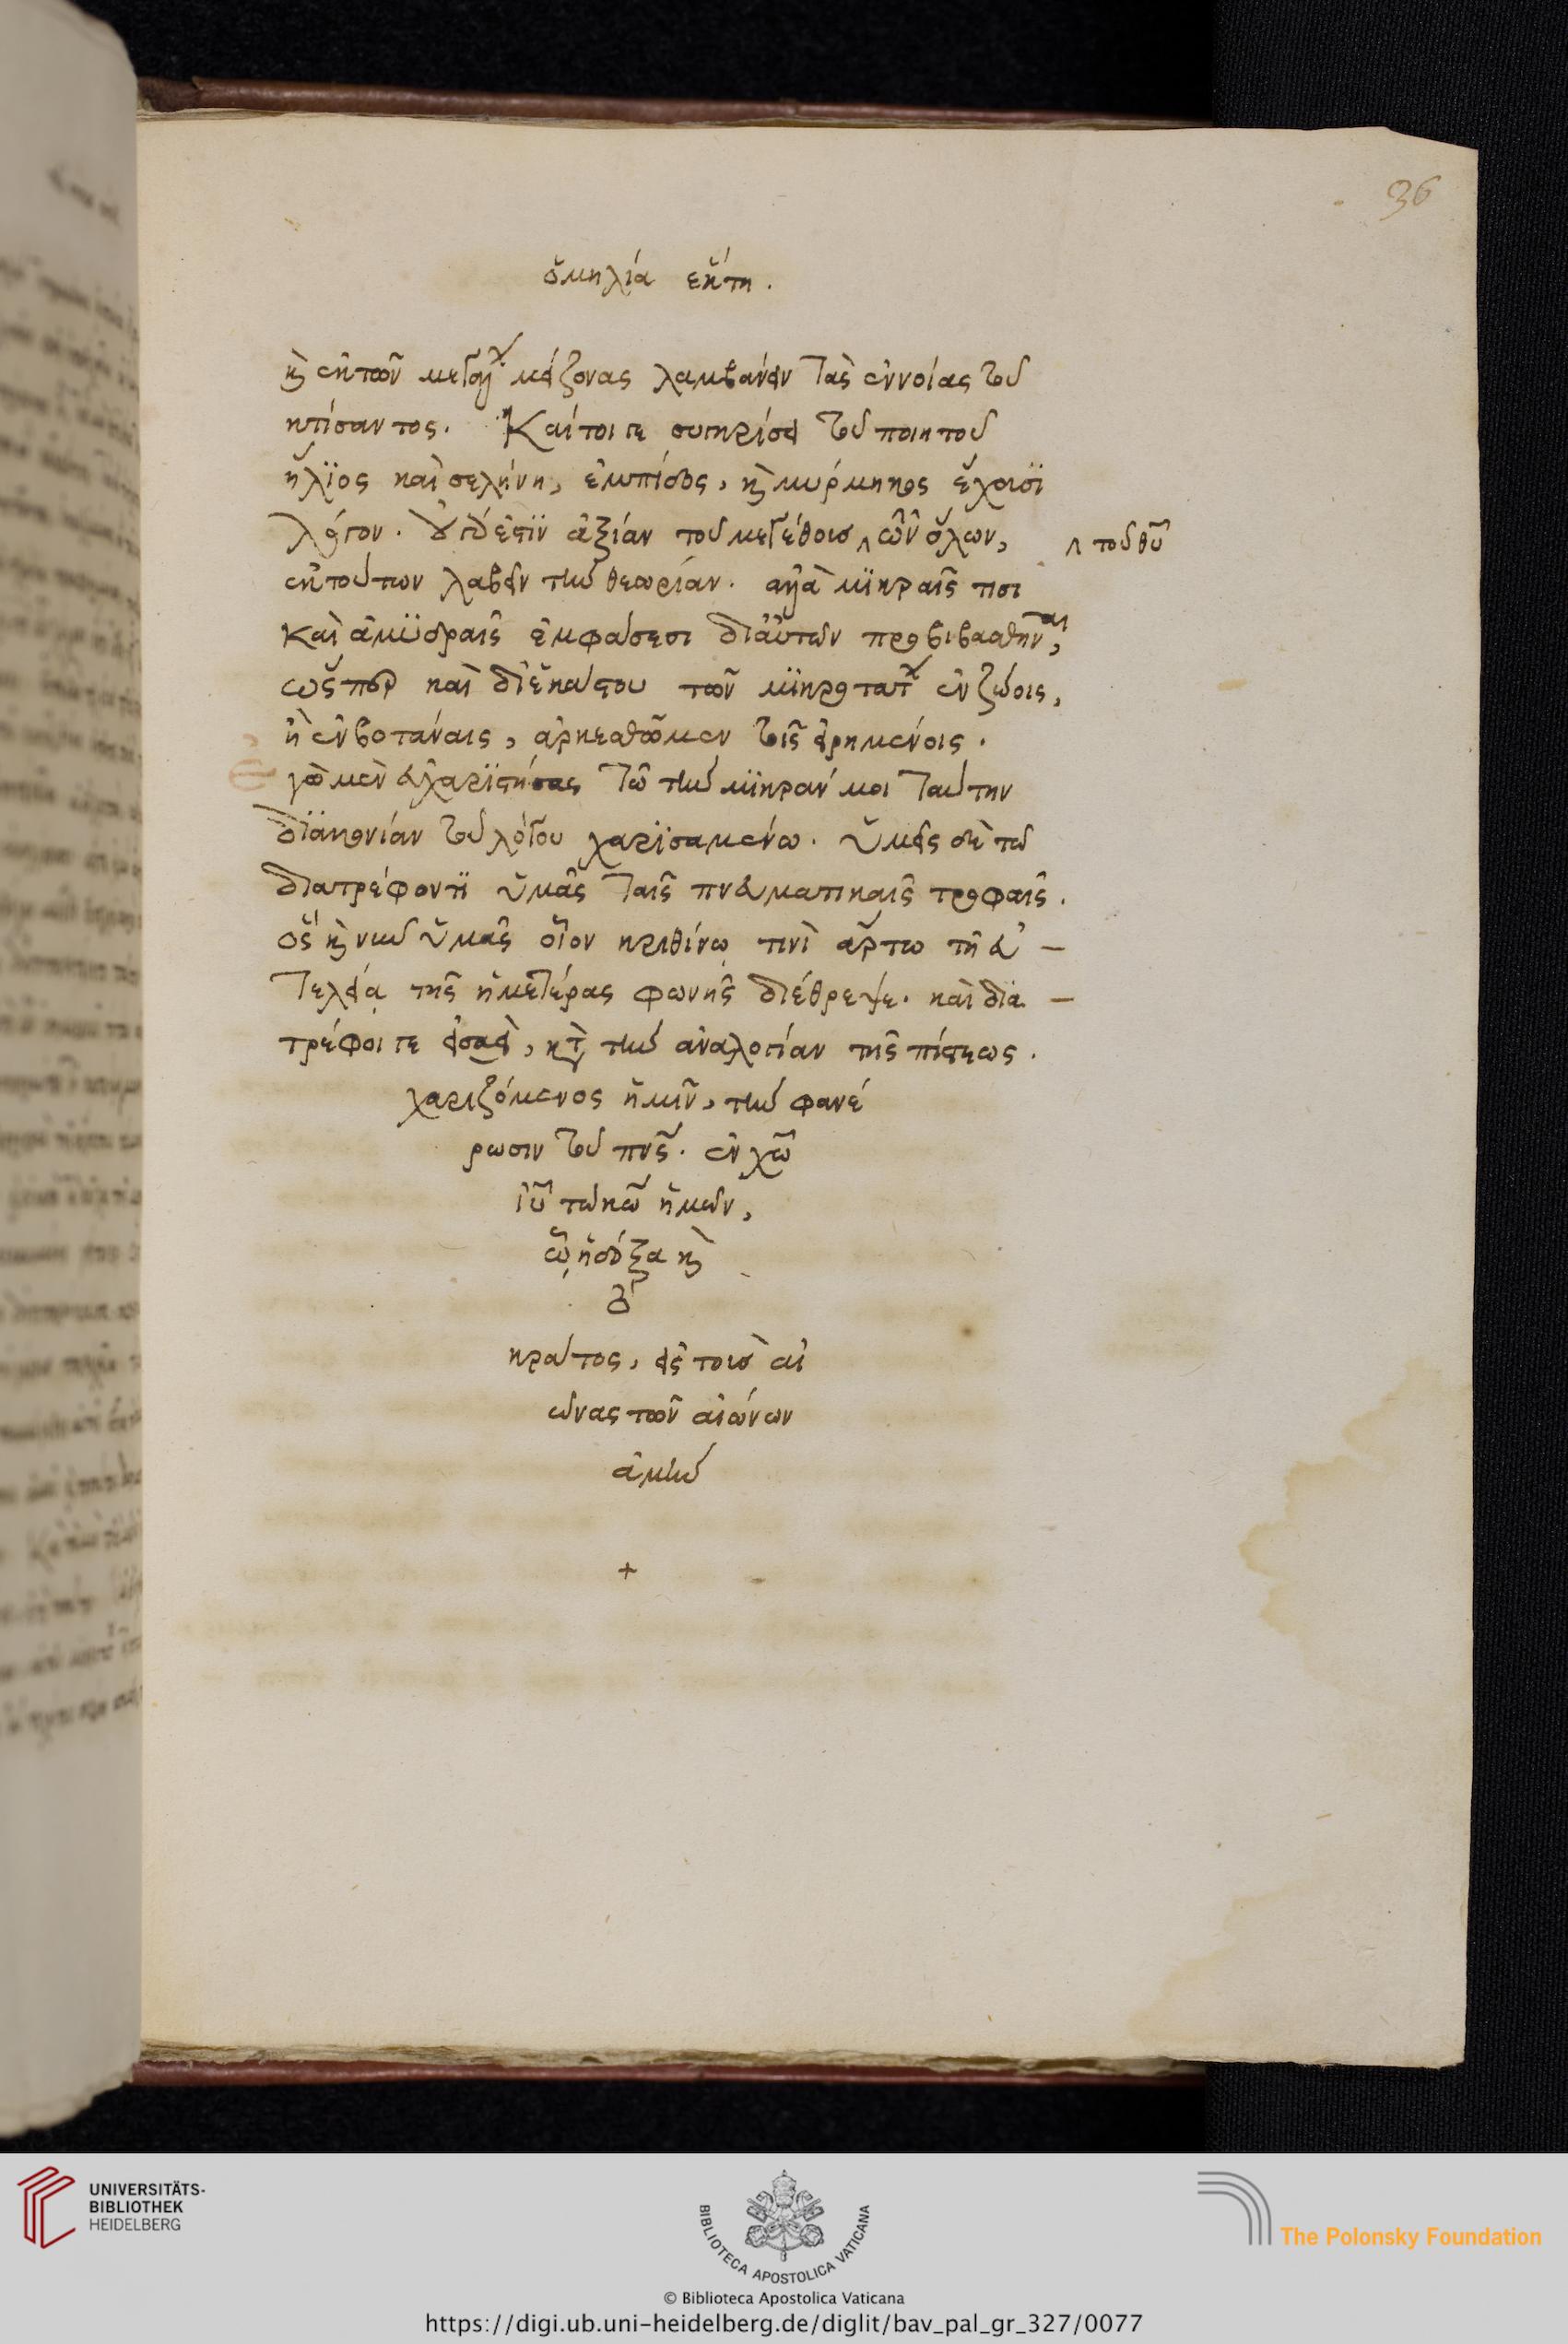 36
ὁμηλία ἕκτη.
κὶ ἐκ τῶν μεγάλων μείζονας λαμβάνειν τὰς ἐννοίας τοῦ
κτίσαντος. Καίτοιγε συγκρίσει τοῦ ποιητοῦ
ἥλϊος καὶ σελήνη, ἐμπίδος, κὶ μύρμηκος ἔχουσϊ
λόγον. οὐγάρ ἐστϊν ἀξίαν τοῦ μεγέθους ‸ τῶν ὅλων,
‸ τοῦ θυ
ἐκ τούτων λαβεῖν τὴν θεωρίαν. ἀλλὰ μϊκραῖς τισι
καὶ ἀμϋδραῖς ἐμφάσεσι δι' αὐτῶν προβιβασθῆναι,
ὥσπερ καὶ δι' ἑκάστου τῶν μϊκροτάτων ἐν ζώοις,
ἢ ἐν βοτάναις, ἀρκεσθῶμεν τοῖς εἰρημένοις.
Ἐγὼ μὲν εὐχαρϊστήσας τῶ τὴν μϊκράν μοι ταύτην
δϊακονίαν τοῦ λόγου χαρϊσαμένω. ὑμεῖς δὲ τῶ
διατρέφοντϊ ὑμᾶς ταῖς πνευματικαῖς τροφαῖς.
ὃς κὶ νῦν ὑμᾶς οἷον κριθίνῳ τινὶ ἄρτω τῆ εὐ –
τελείᾳ τῆς ἡμετέρας φωνῆς διέθρεψε. καὶ δϊα –
τρέφοιγε εἰσαεὶ, κτ τὴν ἀναλογίαν τῆς πίστεως.
χαριζόμενος ἡμῖν, τὴν φανέ
ρωσιν τοῦ πνς. ἐν χω
ιυ τῶ κω ἡμῶν,
ᾧ ἡ δόξα κὶ
τὸ
κράτος, εἰς τοὺς αἰ
ῶνας τῶν αἰώνων
ἀμήν
+
UNIVERSITÄTS-
BIBLIOTHEK
HEIDELBERG
BIBLIOTECA APOSTOLICA VATICANA
The Polonsky Foundation
© Biblioteca Apostolica Vaticana
https://digi.ub.uni-heidelberg.de/diglit/bav_pal_gr_327/0077